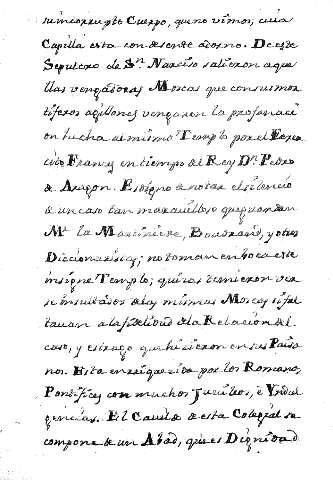 su incorrupto Cuerpo, que no vimos; cuia
Capilla esta con desente adorno. De este
Sepulcro de Sn. Narciso salieron aque
llas vengadoras Moscas que con sus mor
tiferos agillones vengaron la profanaci
on hecha al mismo Templo por el Exer
cito Frances en tiempo del Rey Dn. Pedro
de Aragon. Es digno de notar el silencio
de un caso tan maravilloso que guardan
Mr. la Martiniere, Boudrand, y otros
Diccionaristas; no toman en boca este
insigne Templo; quizas temieron ver
se insultados de las mismas Moscas si fal
tavan a la fidelidad de la Relacion del
caso, y estrago que hizieron en sus Paisa
nos. Esta enriquezido por los Romanos
Pontifices con muchos Jubileos, è Yndul
gencias. El Cavildo de esta Colegial se
compone de un Abad, que es Dignidad